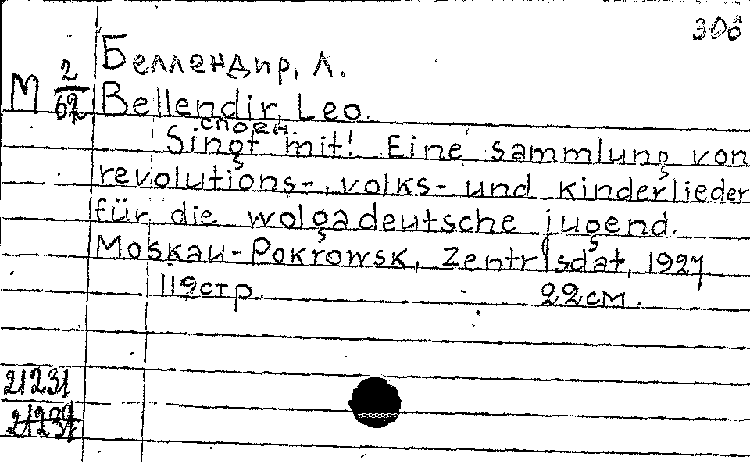 306
Беллендир, Л.
М 2/62 Bellendir, Leo.
споем.
Singt mit! Eine sammlung von
revolutions-, volks- und kinderlieder
für die wolgadeutsche jugend.
Moskau-Pokrowsk, Zentrisdat, 1927
112стр. 22см.
21231
21231